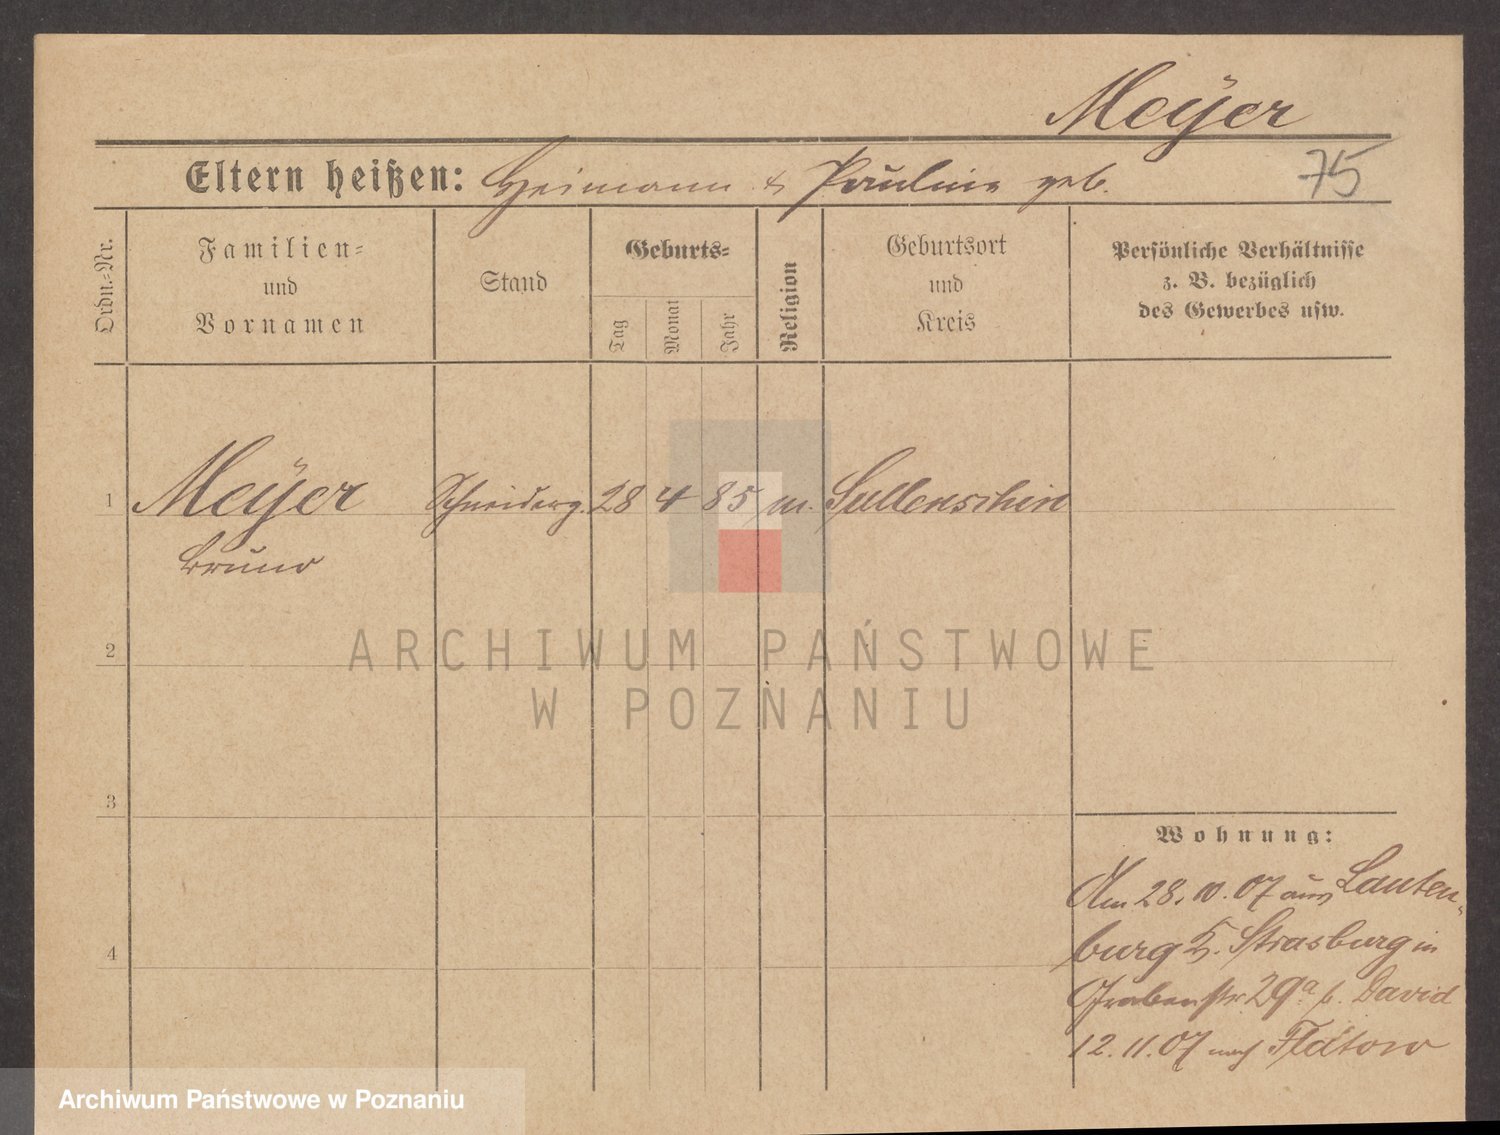 Meÿer
75
Eltern heißen: Heimann & Pauline geb.
Ordn.-Nr.
Familien-
und
Vornamen
Stand
Geburts-
Tag
Monat
Jahr
Religion
Geburtsort
und
Kreis
Persönliche Verhältnisse
z. B. bezüglich
des Gewerbes usw.
1 Meÿer Schneiderg. 28 4 85 m. Sullenschin
Bruno
2
3
4
Wohnung:
Am 28.10.07 aus Lauten-
burg K. Strasburg in
Grabenstr. 29a b. David
12.11.07 nach Flatow
ARCHIWUM PAŃSTWOWE
W POZNANIU
Archiwum Państwowe w Poznaniu